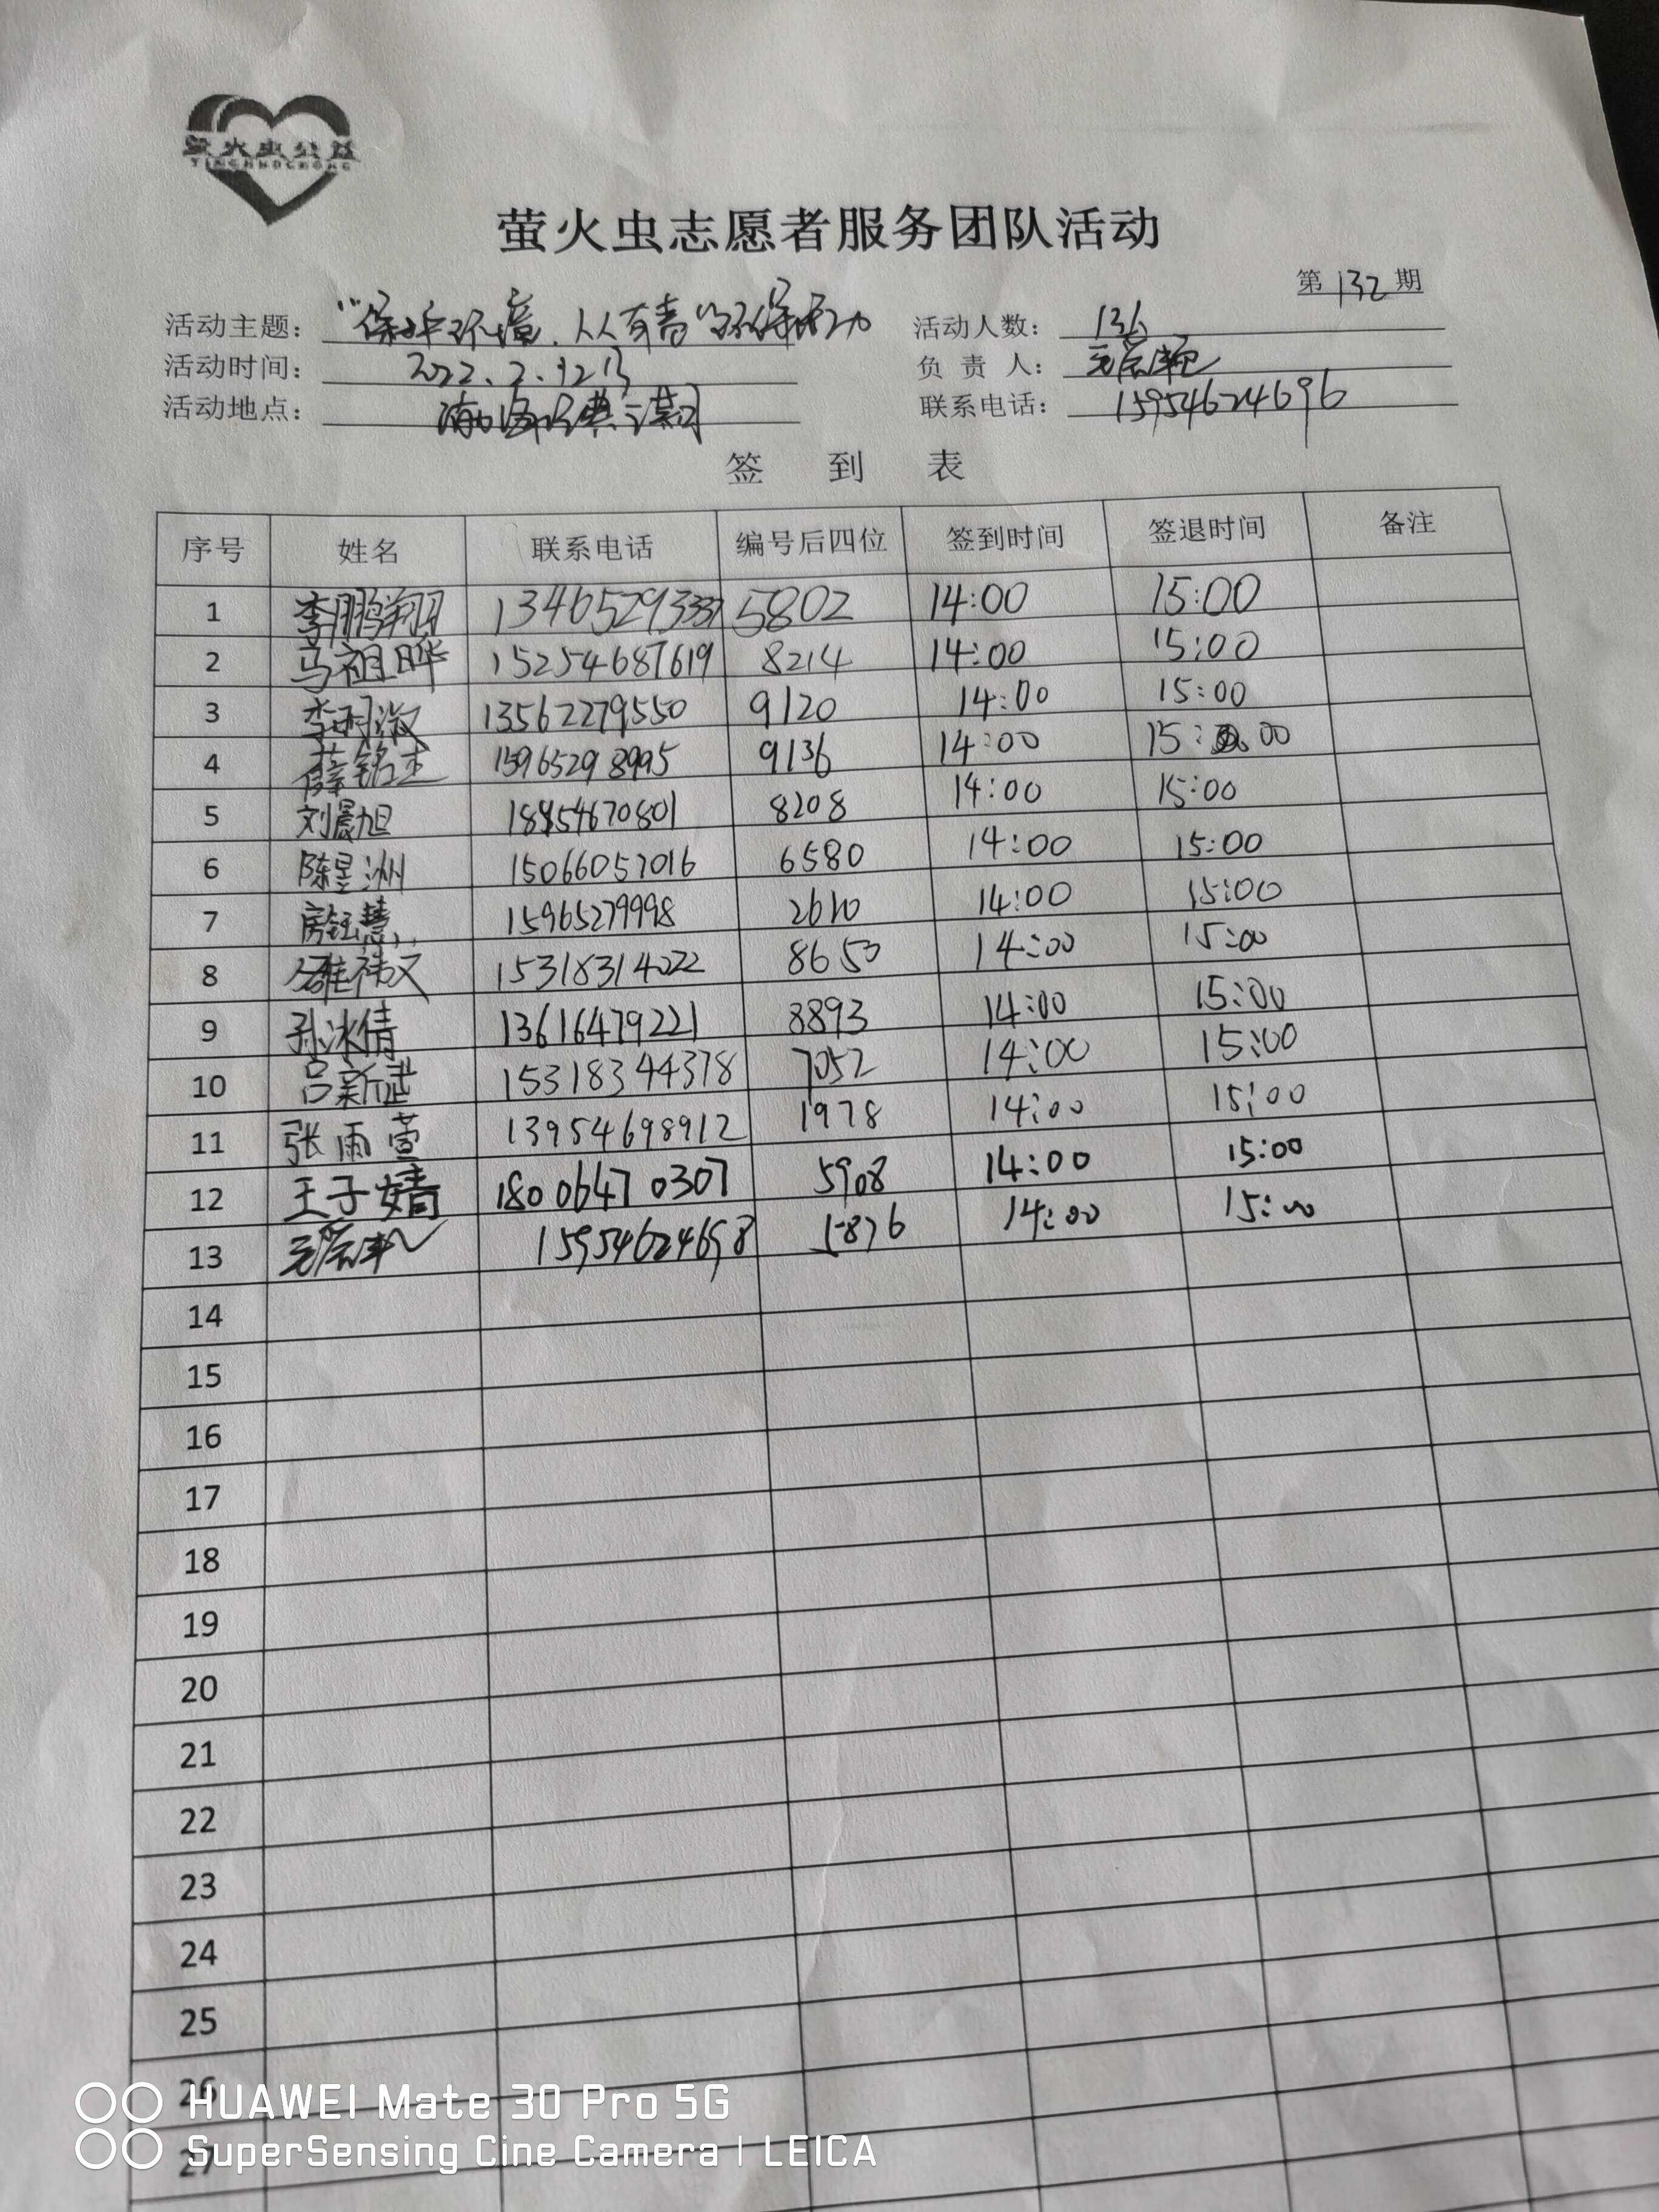 萤火虫公益
YINGHUOCHONG
萤火虫志愿者服务团队活动
第132期
活动主题: "保护环境,人人有责"环保活动
活动人数: 136
活动时间: 2022.2.12日
负责人:
活动地点:
联系电话: 15954624696
签到表
序号 姓名 联系电话 编号后四位 签到时间 签退时间 备注
1 李鹏翔 13465293337 5802 14:00 15:00
2 马祖晔 15254687619 8214 14:00 15:00
3 李明淑 13562279550 9120 14:00 15:00
4 薛铭杰 15965298995 9136 14:00 15:00
5 刘晨旭 18954670801 8208 14:00 15:00
6 陈昱洲 15066057016 6580 14:00 15:00
7 房钰慧 15965279998 2610 14:00 15:00
8 15318314022 8653 14:00 15:00
9 孙冰倩 13616479221 8893 14:00 15:00
10 吕新 15318344378 7052 14:00 15:00
11 张雨萱 13954698912 1978 14:00 15:00
12 王子婧 18006470307 5908 14:00 15:00
13 15954624698 5876 14:00 15:00
14
15
16
17
18
19
20
21
22
23
24
25
26
27
HUAWEI Mate 30 Pro 5G
SuperSensing Cine Camera | LEICA